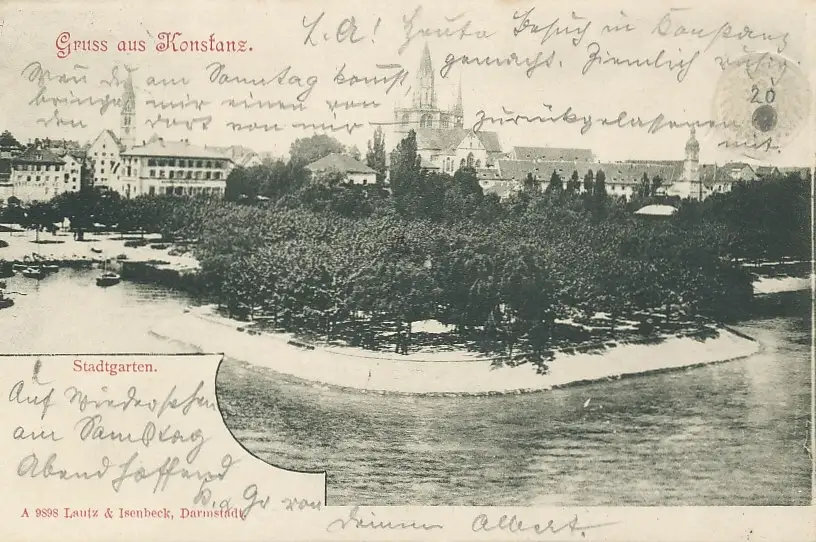 Gruss aus Konstanz.
L. A! Heute Besuch in Constanz
gemacht. Ziemlich
Wen du am Samstag kommst
bringe mir einen von
den dort von mir zurückgelassenen
mit.
20
Stadtgarten.
Auf Wiedersehen
am Samstag
Abend hoffend
u. Gr von
deinem Albert.
A 9898 Lautz & Isenbeck, Darmstadt.